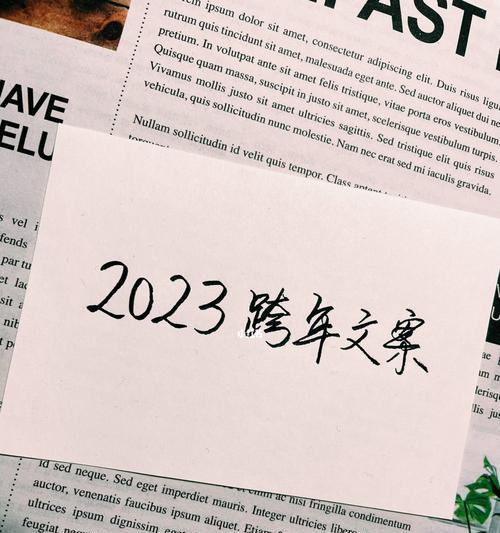 em ipsum dolor sit amet, consectetur adipiscing elit. Duis risus ligu
rutrum quis tincidunt sit amet, malesuada eget ante. Sed auctor aliquet dui ne
pretium. In volutpat ante sit amet felis tristique, vitae porta eros vestibulum.
Quisque quam massa, suscipit in justo sit amet, scelerisque vestibulum turpis.
Vivamus mollis justo sit amet ultricies sagittis. Sed tristique elit quis risus
vehicula, quis sollicitudin nunc molestie. Nam nec erat sed mi iaculis gravida.
Nullam sollicitudin id velit quis tempor. Class aptent
FAST
HAVE
ELU
s vel i
fends
par tu
et lac
sit a
nib
et p
2023 跨年文案
id sed neque. Sed eget imperdiet mauris. Integer ultricies libero
et enim ac nisi fringilla condimentum
auctor, venenatis faucibus ipsum aliquet. Etiam
ultrices ipsum dignissim eget
feugiat neq